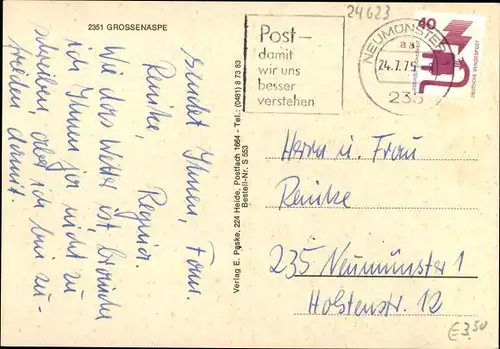 2351 GROSSENASPE
24623
Post-
damit
wir uns
besser
verstehen
NEUMÜNSTER
aa
24.7.75
235
40
DEUTSCHE BUNDESPOST
sendet Ihnen, Fam.
Reinke,
Regina.
Wie das Wetter ist brauche
ich Ihnen ja nicht zu
schreiben, aber ich bin zu-
frieden damit.
Verlag E. Paske, 224 Heide, Postfach 1664 - Tel.: (0481) 8 73 83
Bestell-Nr. S 553
Herrn u. Frau
Reinke
235 Neumünster 1
Holstenstr. 12
€3,50